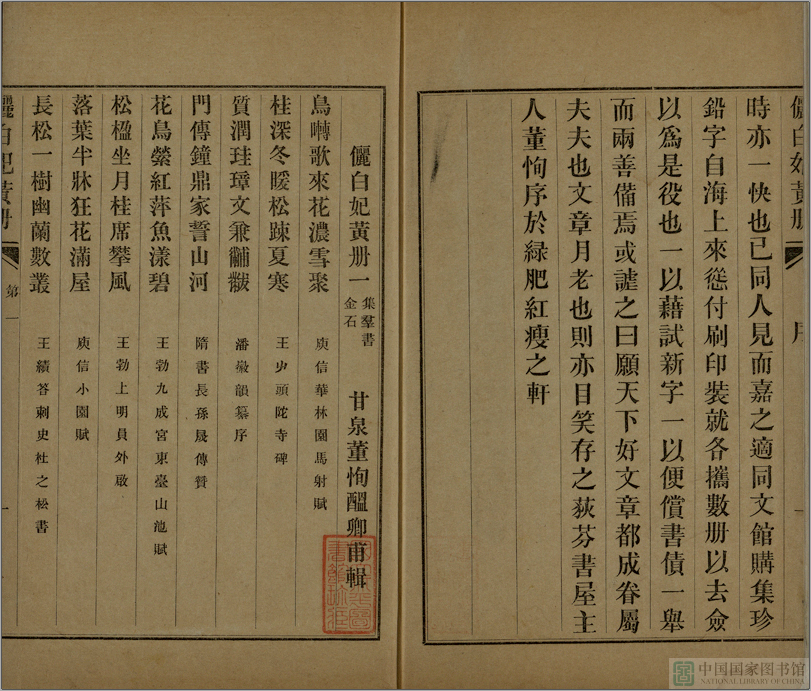 儷白妃黃册
序
時亦一快也已同人見而嘉之適同文館購集珍
鉛字自海上來慫付刷印裝就各攜數册以去僉
以爲是役也一以藉試新字一以便償書債一舉
而兩善備焉或謔之曰願天下好文章都成眷屬
夫夫也文章月老也則亦目笑存之荻芬書屋主
人董恂序於綠肥紅瘦之軒
儷白妃黃册一 集羣書金石 甘泉董恂醞卿甫輯
鳥囀歌來花濃雪聚 庾信華林園馬射賦
桂深冬暖松踈夏寒 王屮頭陀寺碑
質潤珪璋文兼黼黻 潘徽韻纂序
門傳鐘鼎家誓山河 隋書長孫晟傳贊
花鳥縈紅萍魚漾碧 王勃九成宮東臺山池賦
松楹坐月桂席攀風 王勃上明員外啟
落葉半牀狂花滿屋 庾信小園賦
長松一樹幽蘭數叢 王績答刺史杜之松書
儷白妃黃册
第一
一
中国国家图书馆
NATIONAL LIBRARY OF CHINA